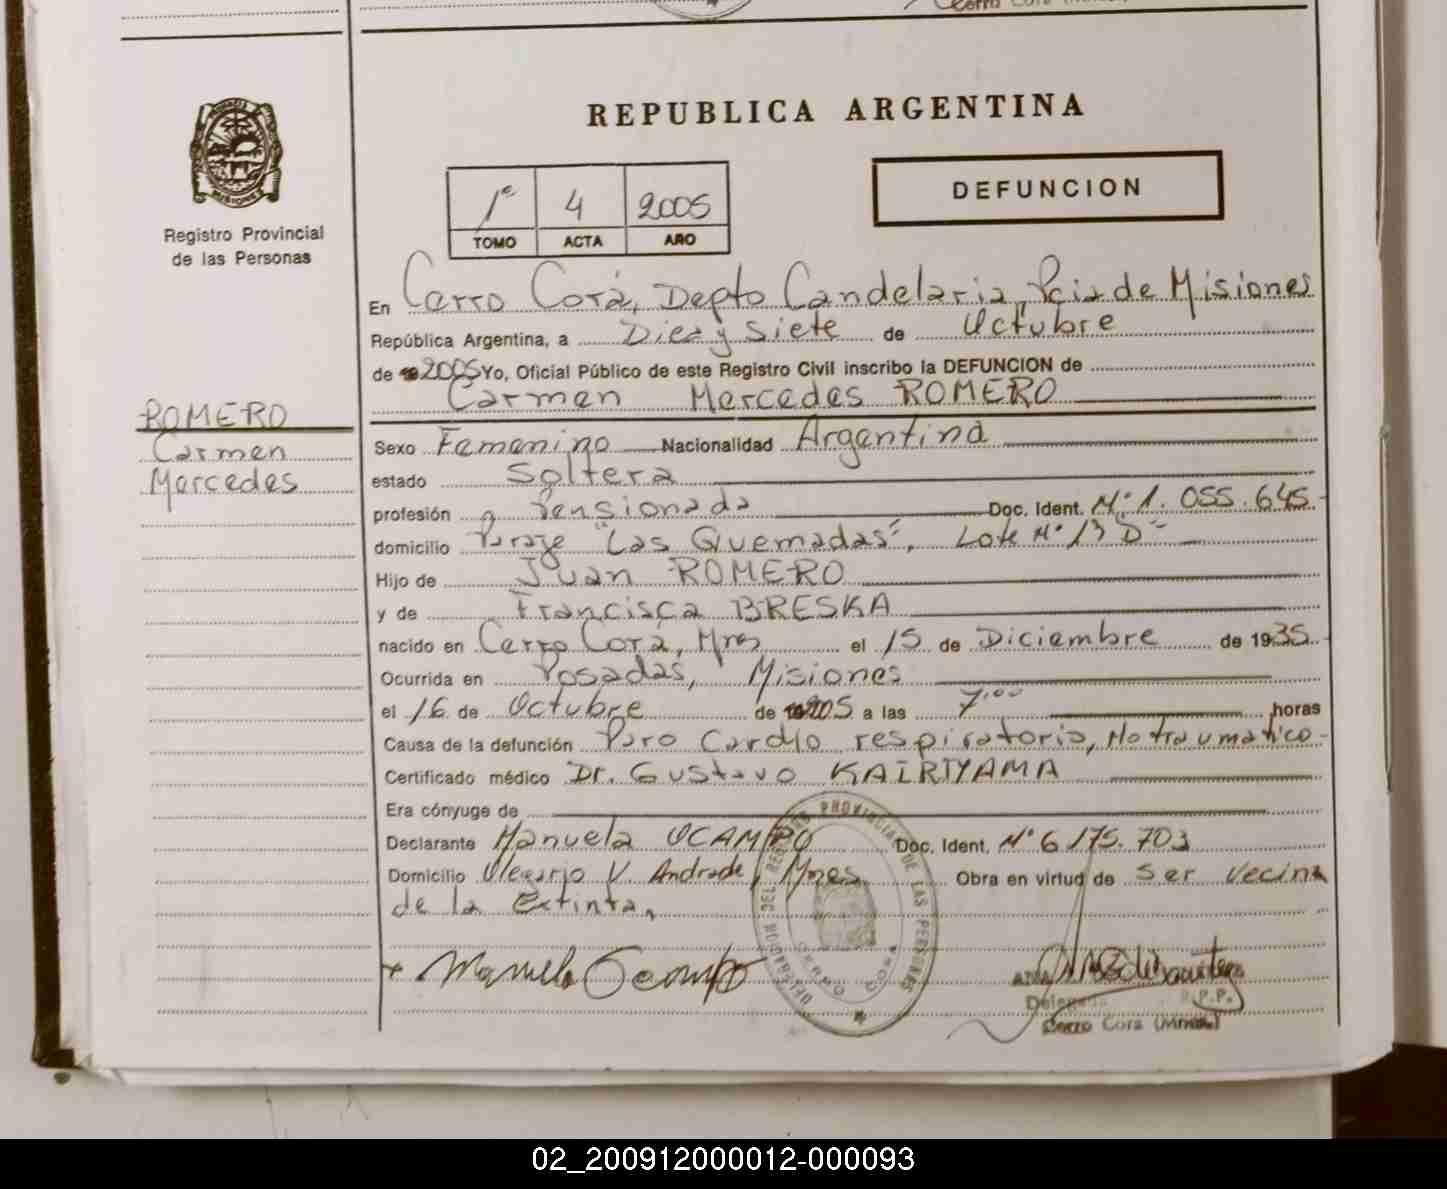 REPUBLICA ARGENTINA
DEFUNCION
1º 4 2005
TOMO ACTA AÑO
Registro Provincial
de las Personas
En Cerro Corá, Depto Candelaria, Pcia de Misiones
República Argentina, a Diez y Siete de Octubre
de 2005 Yo, Oficial Público de este Registro Civil inscribo la DEFUNCION de
Carmen Mercedes ROMERO
ROMERO
Carmen
Mercedes
Sexo Femenino Nacionalidad Argentina
estado Soltera
profesión Pensionada Doc. Ident. Nº 1.055.645
domicilio Paraje "Las Quemadas", Lote Nº 13 D
Hijo de Juan ROMERO
y de Francisca BRESKA
nacido en Cerro Corá, Mnes el 15 de Diciembre de 1935
Ocurrida en Posadas, Misiones
el 16 de Octubre de 2005 a las 7,00 horas
Causa de la defunción Paro Cardio respiratorio, No traumatico
Certificado médico Dr. Gustavo KAIRIYAMA
Era cónyuge de
Declarante Manuela OCAMPO Doc. Ident. Nº 6.175.703
Domicilio Olegario V. Andrade, Mnes Obra en virtud de Ser Vecina
de la Extinta,
Manuela Ocampo
DELEGACION DEL REGISTRO PROVINCIAL DE LAS PERSONAS
CERRO CORA
Delegada R.P.P.
Cerro Cora (Mnes.)
02_200912000012-000093